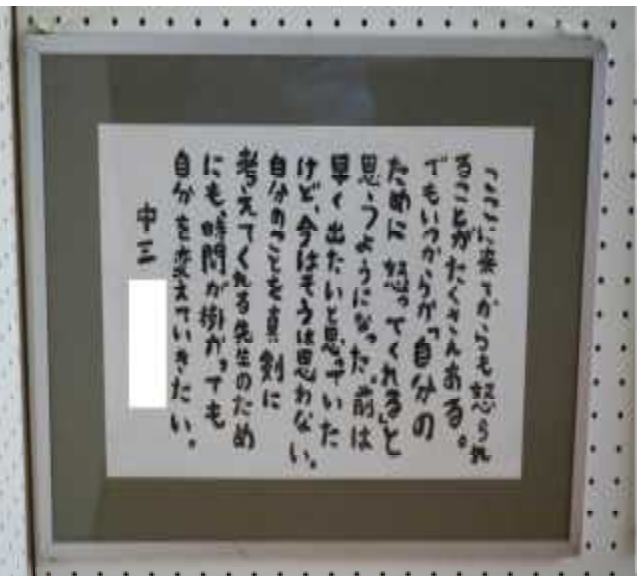 ここに来てからも怒られ
ることがたくさんある。
でもいつからか「自分の
ために怒ってくれる」と
思うようになった。前は
早く出たいと思っていた
けど、今はそうは思わない。
自分のことを真剣に
考えてくれる先生のため
にも、時間が掛かっても
自分を変えていきたい。
中三